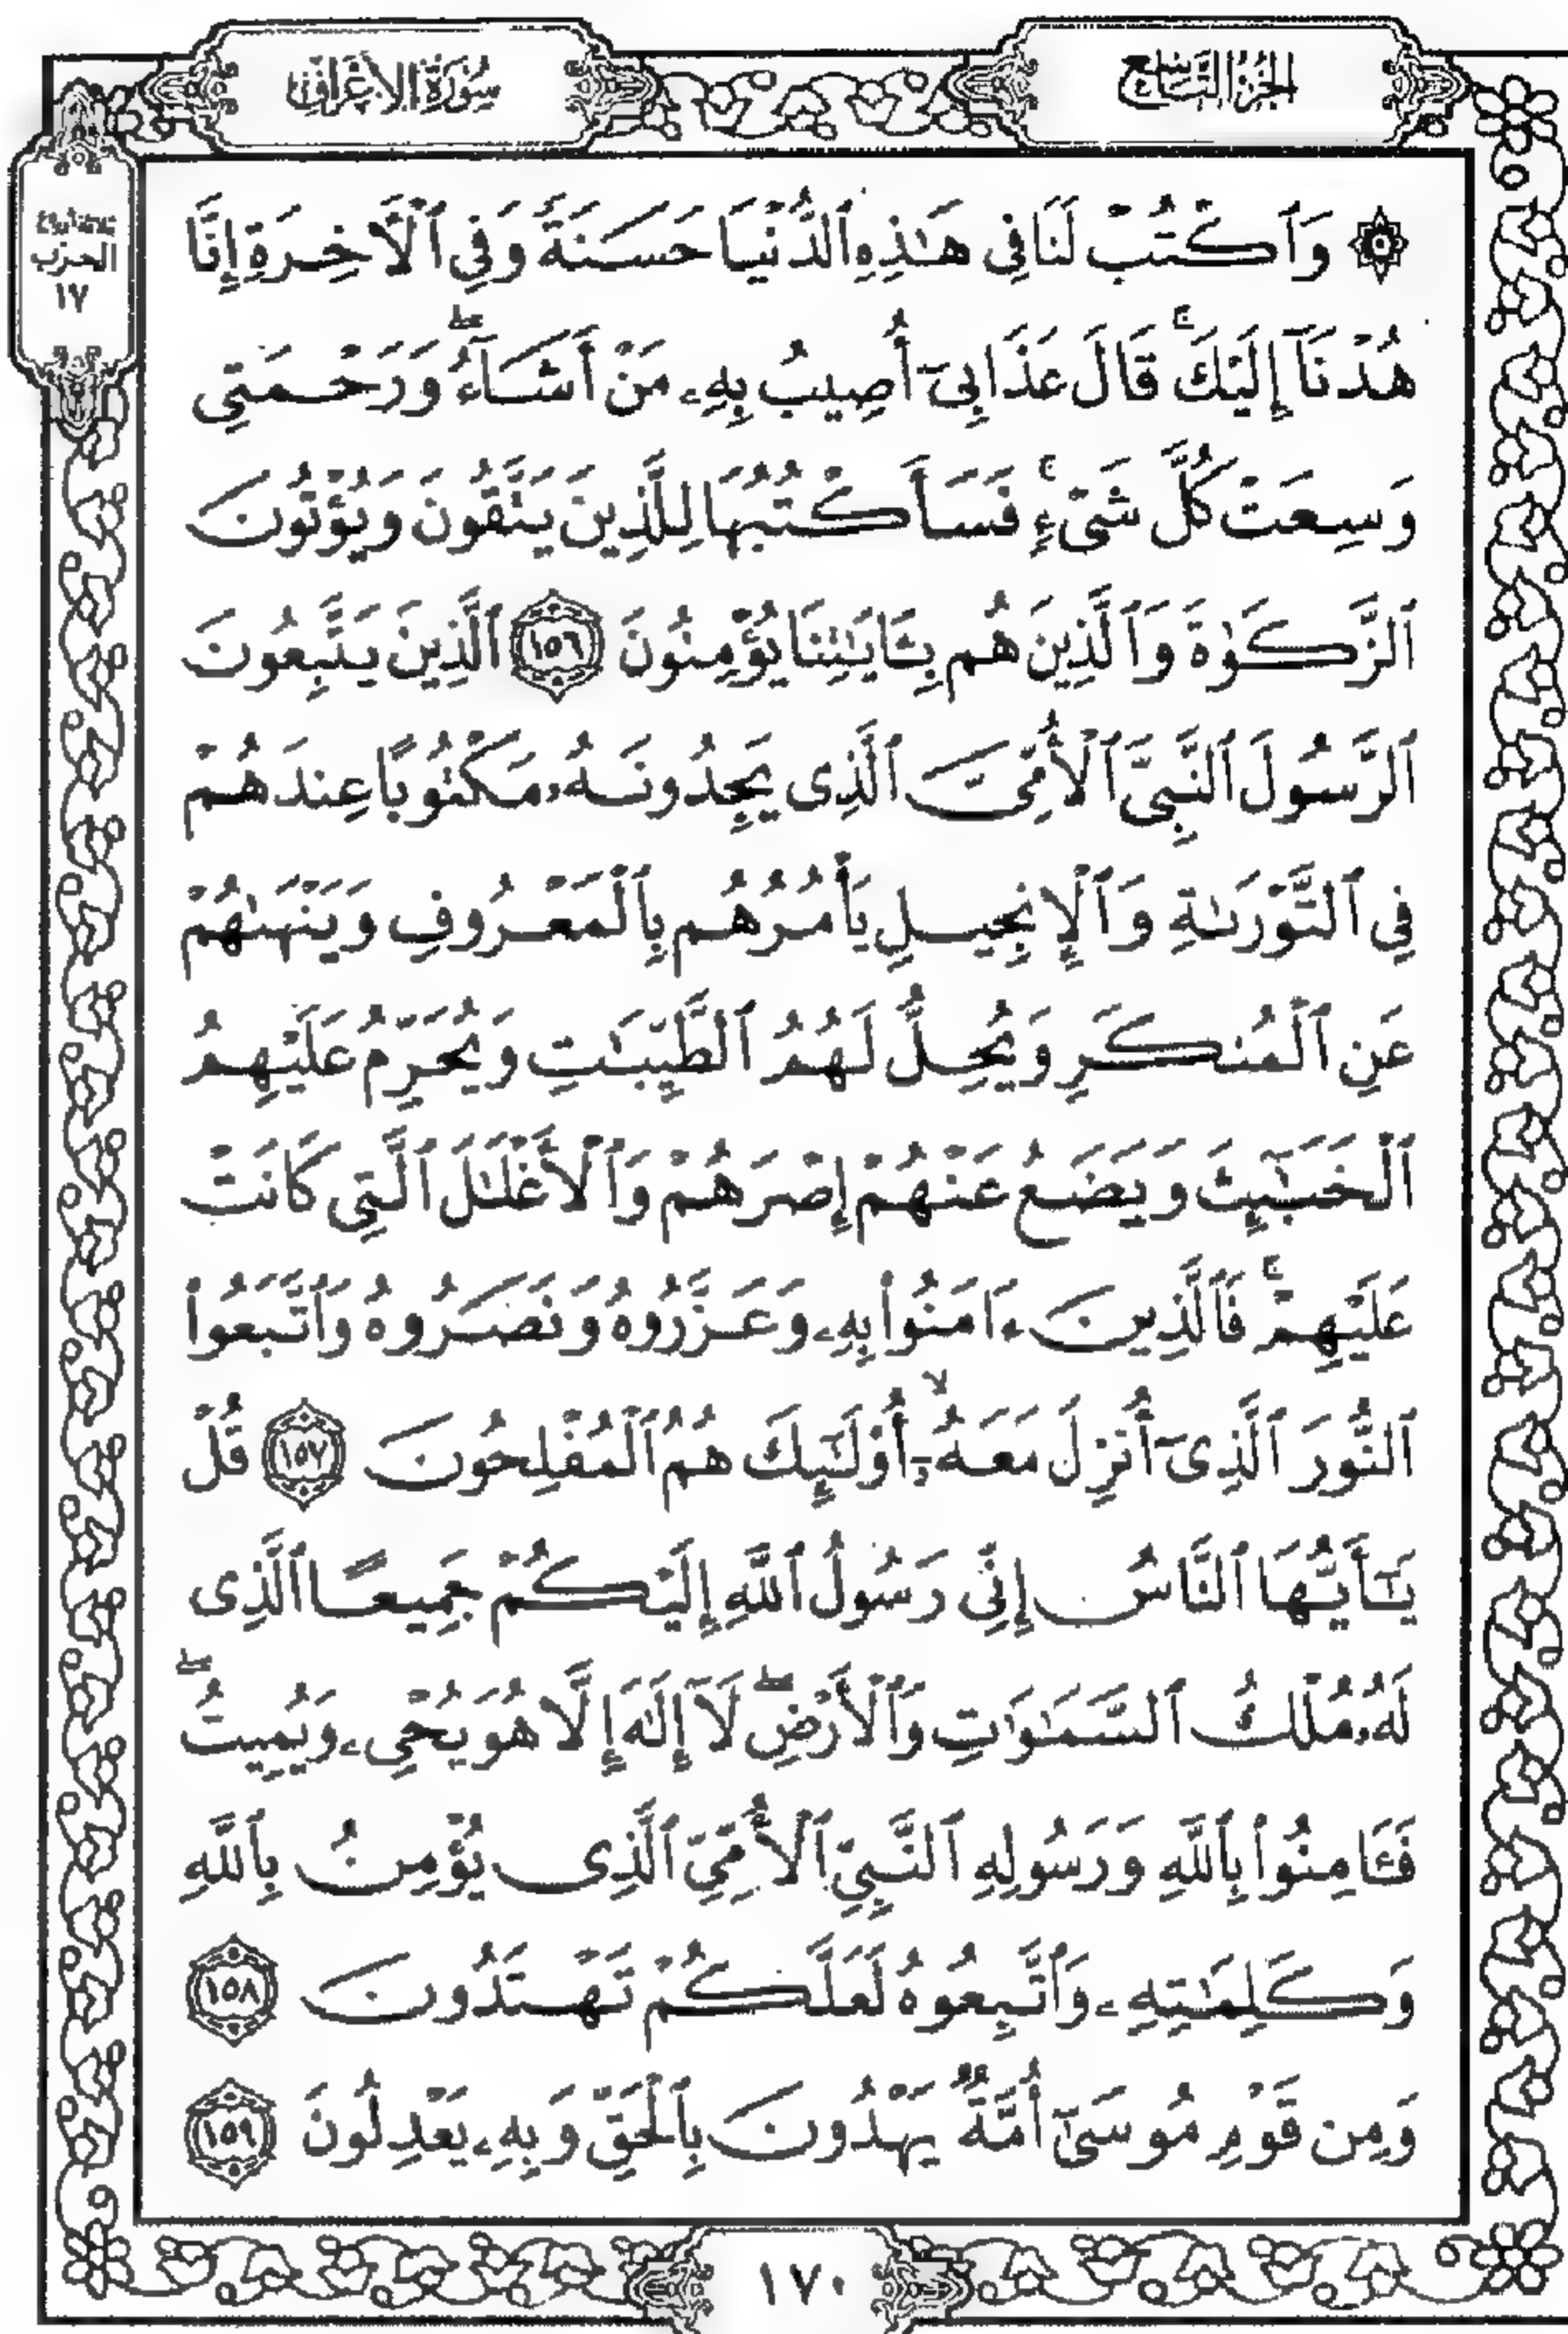 الجزء التاسع
سورة الأعراف
ثلاثة أرباع
الحزب
١٧
۞ وَٱكْتُبْ لَنَا فِى هَـٰذِهِ ٱلدُّنْيَا حَسَنَةً وَفِى ٱلْأَخِرَةِ إِنَّا
هُدْنَآ إِلَيْكَ ۚ قَالَ عَذَابِىٓ أُصِيبُ بِهِۦ مَنْ أَشَآءُ ۖ وَرَحْمَتِى
وَسِعَتْ كُلَّ شَىْءٍ ۚ فَسَأَكْتُبُهَا لِلَّذِينَ يَتَّقُونَ وَيُؤْتُونَ
ٱلزَّكَوٰةَ وَٱلَّذِينَ هُم بِـَٔايَـٰتِنَا يُؤْمِنُونَ ١٥٦ ٱلَّذِينَ يَتَّبِعُونَ
ٱلرَّسُولَ ٱلنَّبِىَّ ٱلْأُمِّىَّ ٱلَّذِى يَجِدُونَهُۥ مَكْتُوبًا عِندَهُمْ
فِى ٱلتَّوْرَىٰةِ وَٱلْإِنجِيلِ يَأْمُرُهُم بِٱلْمَعْرُوفِ وَيَنْهَىٰهُمْ
عَنِ ٱلْمُنكَرِ وَيُحِلُّ لَهُمُ ٱلطَّيِّبَـٰتِ وَيُحَرِّمُ عَلَيْهِمُ
ٱلْخَبَـٰٓئِثَ وَيَضَعُ عَنْهُمْ إِصْرَهُمْ وَٱلْأَغْلَـٰلَ ٱلَّتِى كَانَتْ
عَلَيْهِمْ ۚ فَٱلَّذِينَ ءَامَنُوا۟ بِهِۦ وَعَزَّرُوهُ وَنَصَرُوهُ وَٱتَّبَعُوا۟
ٱلنُّورَ ٱلَّذِىٓ أُنزِلَ مَعَهُۥٓ ۙ أُو۟لَـٰٓئِكَ هُمُ ٱلْمُفْلِحُونَ ١٥٧ قُلْ
يَـٰٓأَيُّهَا ٱلنَّاسُ إِنِّى رَسُولُ ٱللَّهِ إِلَيْكُمْ جَمِيعًا ٱلَّذِى
لَهُۥ مُلْكُ ٱلسَّمَـٰوَٰتِ وَٱلْأَرْضِ ۖ لَآ إِلَـٰهَ إِلَّا هُوَ يُحْىِۦ وَيُمِيتُ ۖ
فَـَٔامِنُوا۟ بِٱللَّهِ وَرَسُولِهِ ٱلنَّبِىِّ ٱلْأُمِّىِّ ٱلَّذِى يُؤْمِنُ بِٱللَّهِ
وَكَلِمَـٰتِهِۦ وَٱتَّبِعُوهُ لَعَلَّكُمْ تَهْتَدُونَ ١٥٨
وَمِن قَوْمِ مُوسَىٰٓ أُمَّةٌ يَهْدُونَ بِٱلْحَقِّ وَبِهِۦ يَعْدِلُونَ ١٥٩
١٧٠